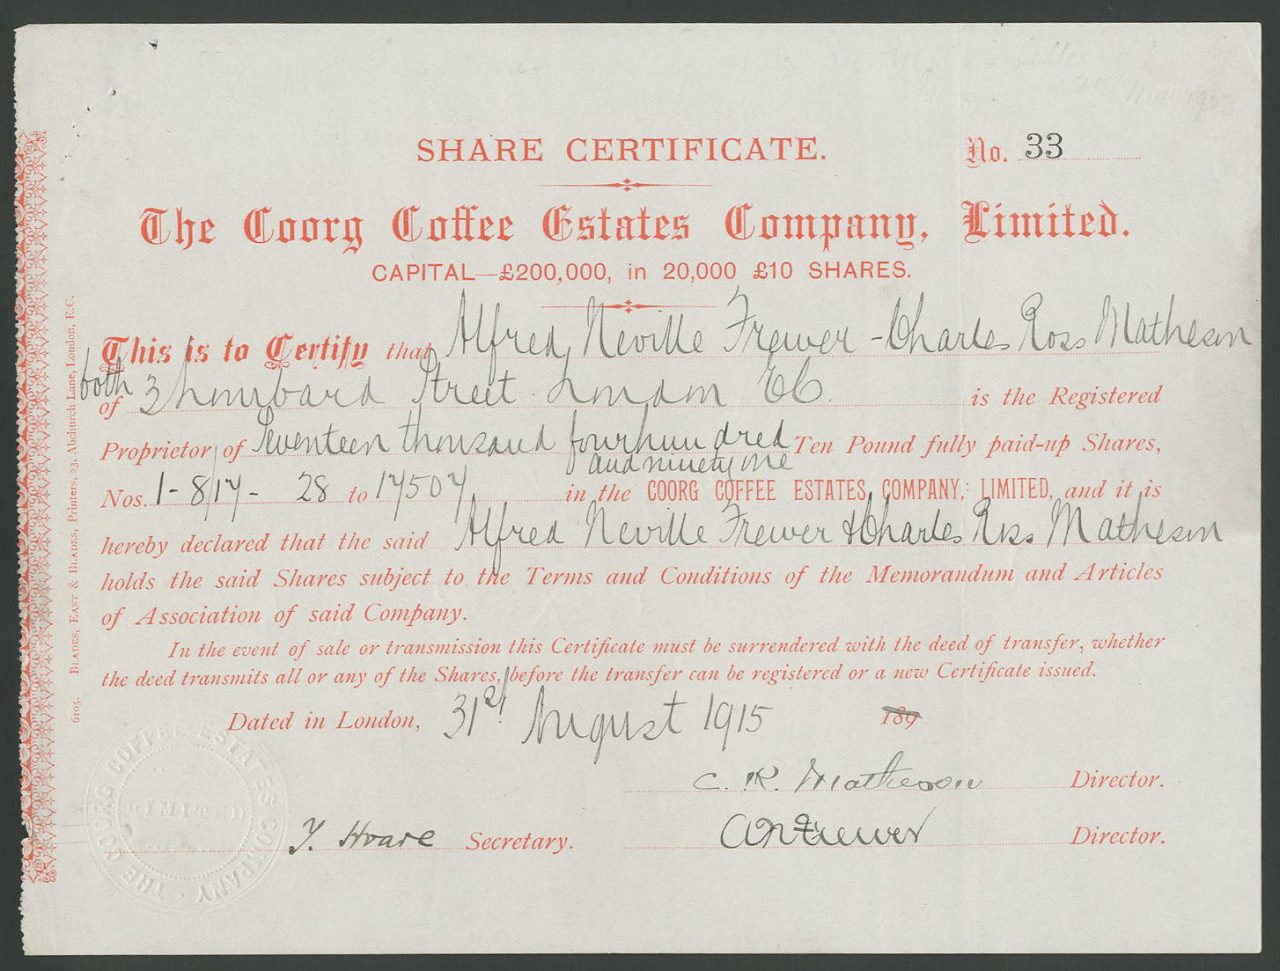 SHARE CERTIFICATE.
No. 33
The Coorg Coffee Estates Company, Limited.
CAPITAL—£200,000, in 20,000 £10 SHARES.
This is to Certify that Alfred Neville Frewer - Charles Ross Matheson
both
of 3 Lombard Street London EC. is the Registered
Proprietor of Seventeen thousand four hundred Ten Pound fully paid-up Shares,
and ninety one
Nos. 1-8/17- 28 to 17507 in the COORG COFFEE ESTATES COMPANY, LIMITED, and it is
hereby declared that the said Alfred Neville Frewer & Charles Ross Matheson
holds the said Shares subject to the Terms and Conditions of the Memorandum and Articles
of Association of said Company.
In the event of sale or transmission this Certificate must be surrendered with the deed of transfer, whether
the deed transmits all or any of the Shares, before the transfer can be registered or a new Certificate issued.
Dated in London, 31st August 1915 189
C. R. Matheson Director.
Y. Hoare Secretary.
A N Frewer Director.
THE COORG COFFEE ESTATES COMPANY
LIMITED
6105. BLADES, EAST & BLADES, Printers, 23, Abchurch Lane, London, E.C.